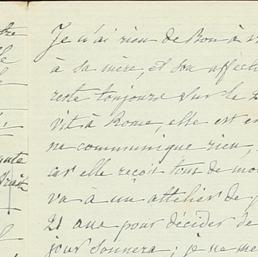 Je n'ai rien de Bon à v
à sa mère, et son affecti
reste toujours sur le
vit à Rome elle est en
ne communique rien,
car elle reçoit tout de mo
va à un attelier de
21 ans pour décider de
jour sonnera ; je ne me